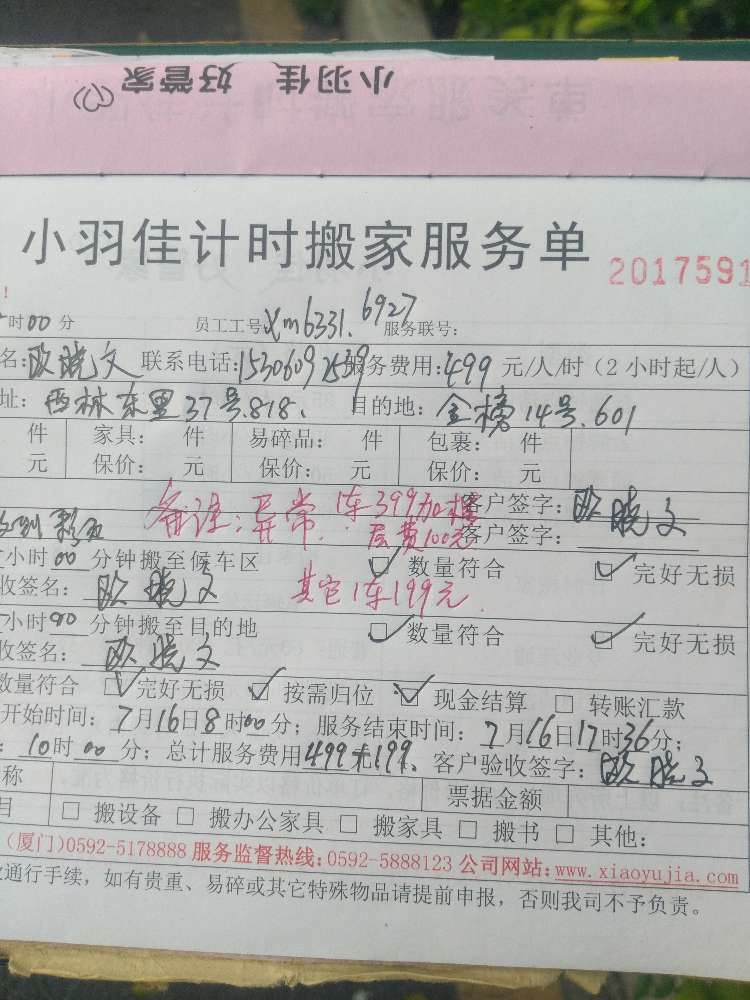 小羽佳 好管家
小羽佳计时搬家服务单
2017591
!
时00分 员工工号:xm6331.6927 服务联号:
名:欧晓文 联系电话:15306092539 服务费用:499元/人/时(2小时起/人)
址:西林东里37号.818. 目的地:金榜14号.601
件 家具: 件 易碎品: 件 包裹: 件
元 保价: 元 保价: 元 保价: 元
备注:异常.1车399加楼 客户签字:欧晓文
层费100元 客户签字:
小时00分钟搬至候车区 数量符合 完好无损
收签名:欧晓文 其它1车199元.
小时00分钟搬至目的地 数量符合 完好无损
收签名:欧晓文
数量符合 完好无损 按需归位 现金结算 转账汇款
开始时间:7月16日8时00分;服务结束时间:7月16日17时36分;
:10时00分;总计服务费用499 客户验收签字:欧晓文
称 票据金额
目 搬设备 搬办公家具 搬家具 搬书 其他:
(厦门)0592-5178888 服务监督热线:0592-5888123 公司网站:www.xiaoyujia.com
通行手续,如有贵重、易碎或其它特殊物品请提前申报,否则我司不予负责。